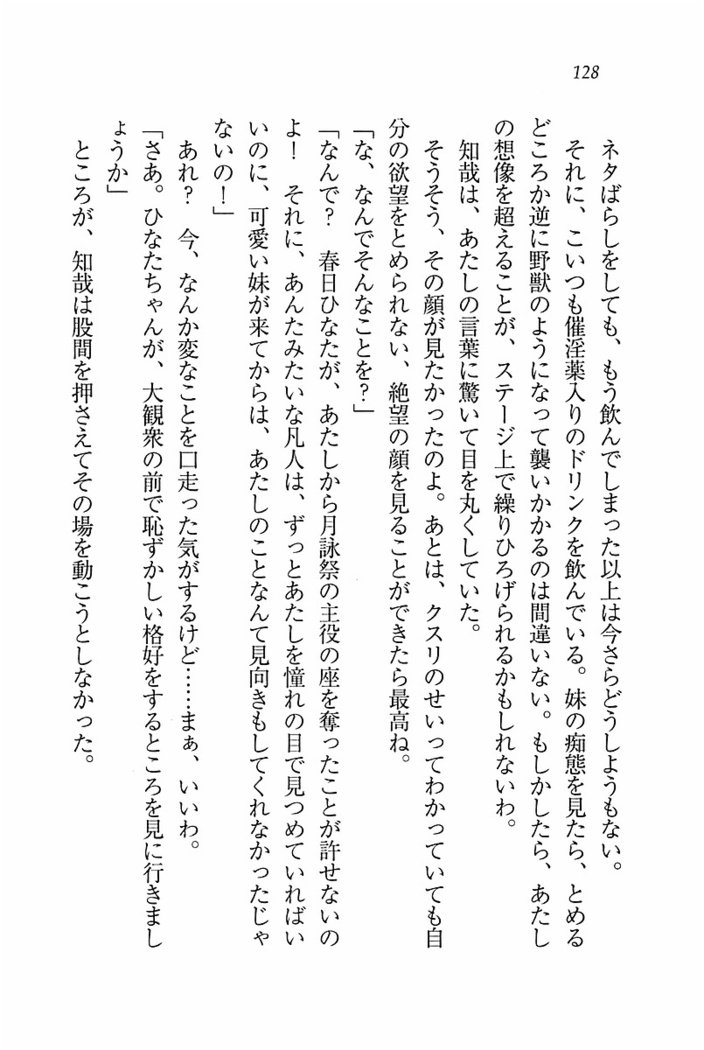 128
ネタばらしをしても、もう飲んでしまった以上は今さらどうしようもない。
それに、こいつも催淫薬入りのドリンクを飲んでいる。妹の痴態を見たら、とめる
どころか逆に野獣のようになって襲いかかるのは間違いない。もしかしたら、あたし
の想像を超えることが、ステージ上で繰りひろげられるかもしれないわ。
知哉は、あたしの言葉に驚いて目を丸くしていた。
そうそう、その顔が見たかったのよ。あとは、クスリのせいってわかっていても自
分の欲望をとめられない、絶望の顔を見ることができたら最高ね。
「な、なんでそんなことを?」
「なんで?　春日ひなたが、あたしから月詠祭の主役の座を奪ったことが許せないの
よ!　それに、あんたみたいな凡人は、ずっとあたしを憧れの目で見つめていればい
いのに、可愛い妹が来てからは、あたしのことなんて見向きもしてくれなかったじゃ
ないの!」
あれ?　今、なんか変なことを口走った気がするけど……まぁ、いいわ。
「さあ。ひなたちゃんが、大観衆の前で恥ずかしい格好をするところを見に行きまし
ょうか」
ところが、知哉は股間を押さえてその場を動こうとしなかった。